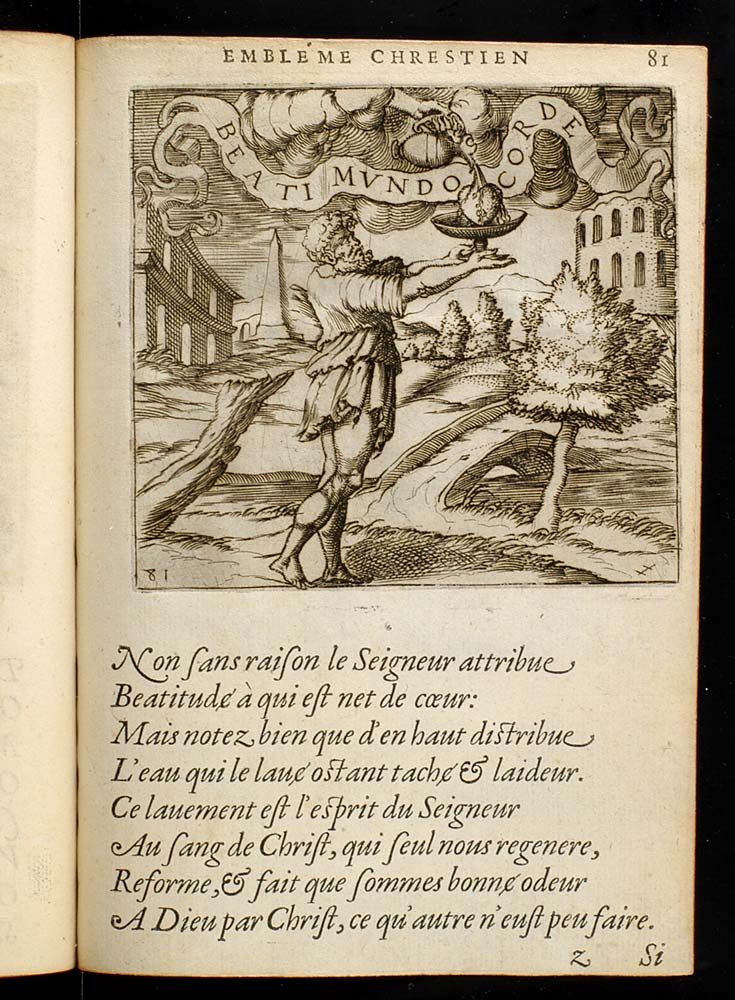 EMBLEME CHRESTIEN 81
BEATI MVNDO CORDE
81
Non ſans raiſon le Seigneur attribue
Beatitude à qui eſt net de cœur:
Mais notez bien que d'en haut diſtribue
L'eau qui le laue oſtant tache & laideur.
Ce lauement eſt l'eſprit du Seigneur
Au ſang de Chriſt, qui ſeul nous regenere,
Reforme, & fait que ſommes bonne odeur
A Dieu par Chriſt, ce qu'autre n'euſt peu faire.
z Si